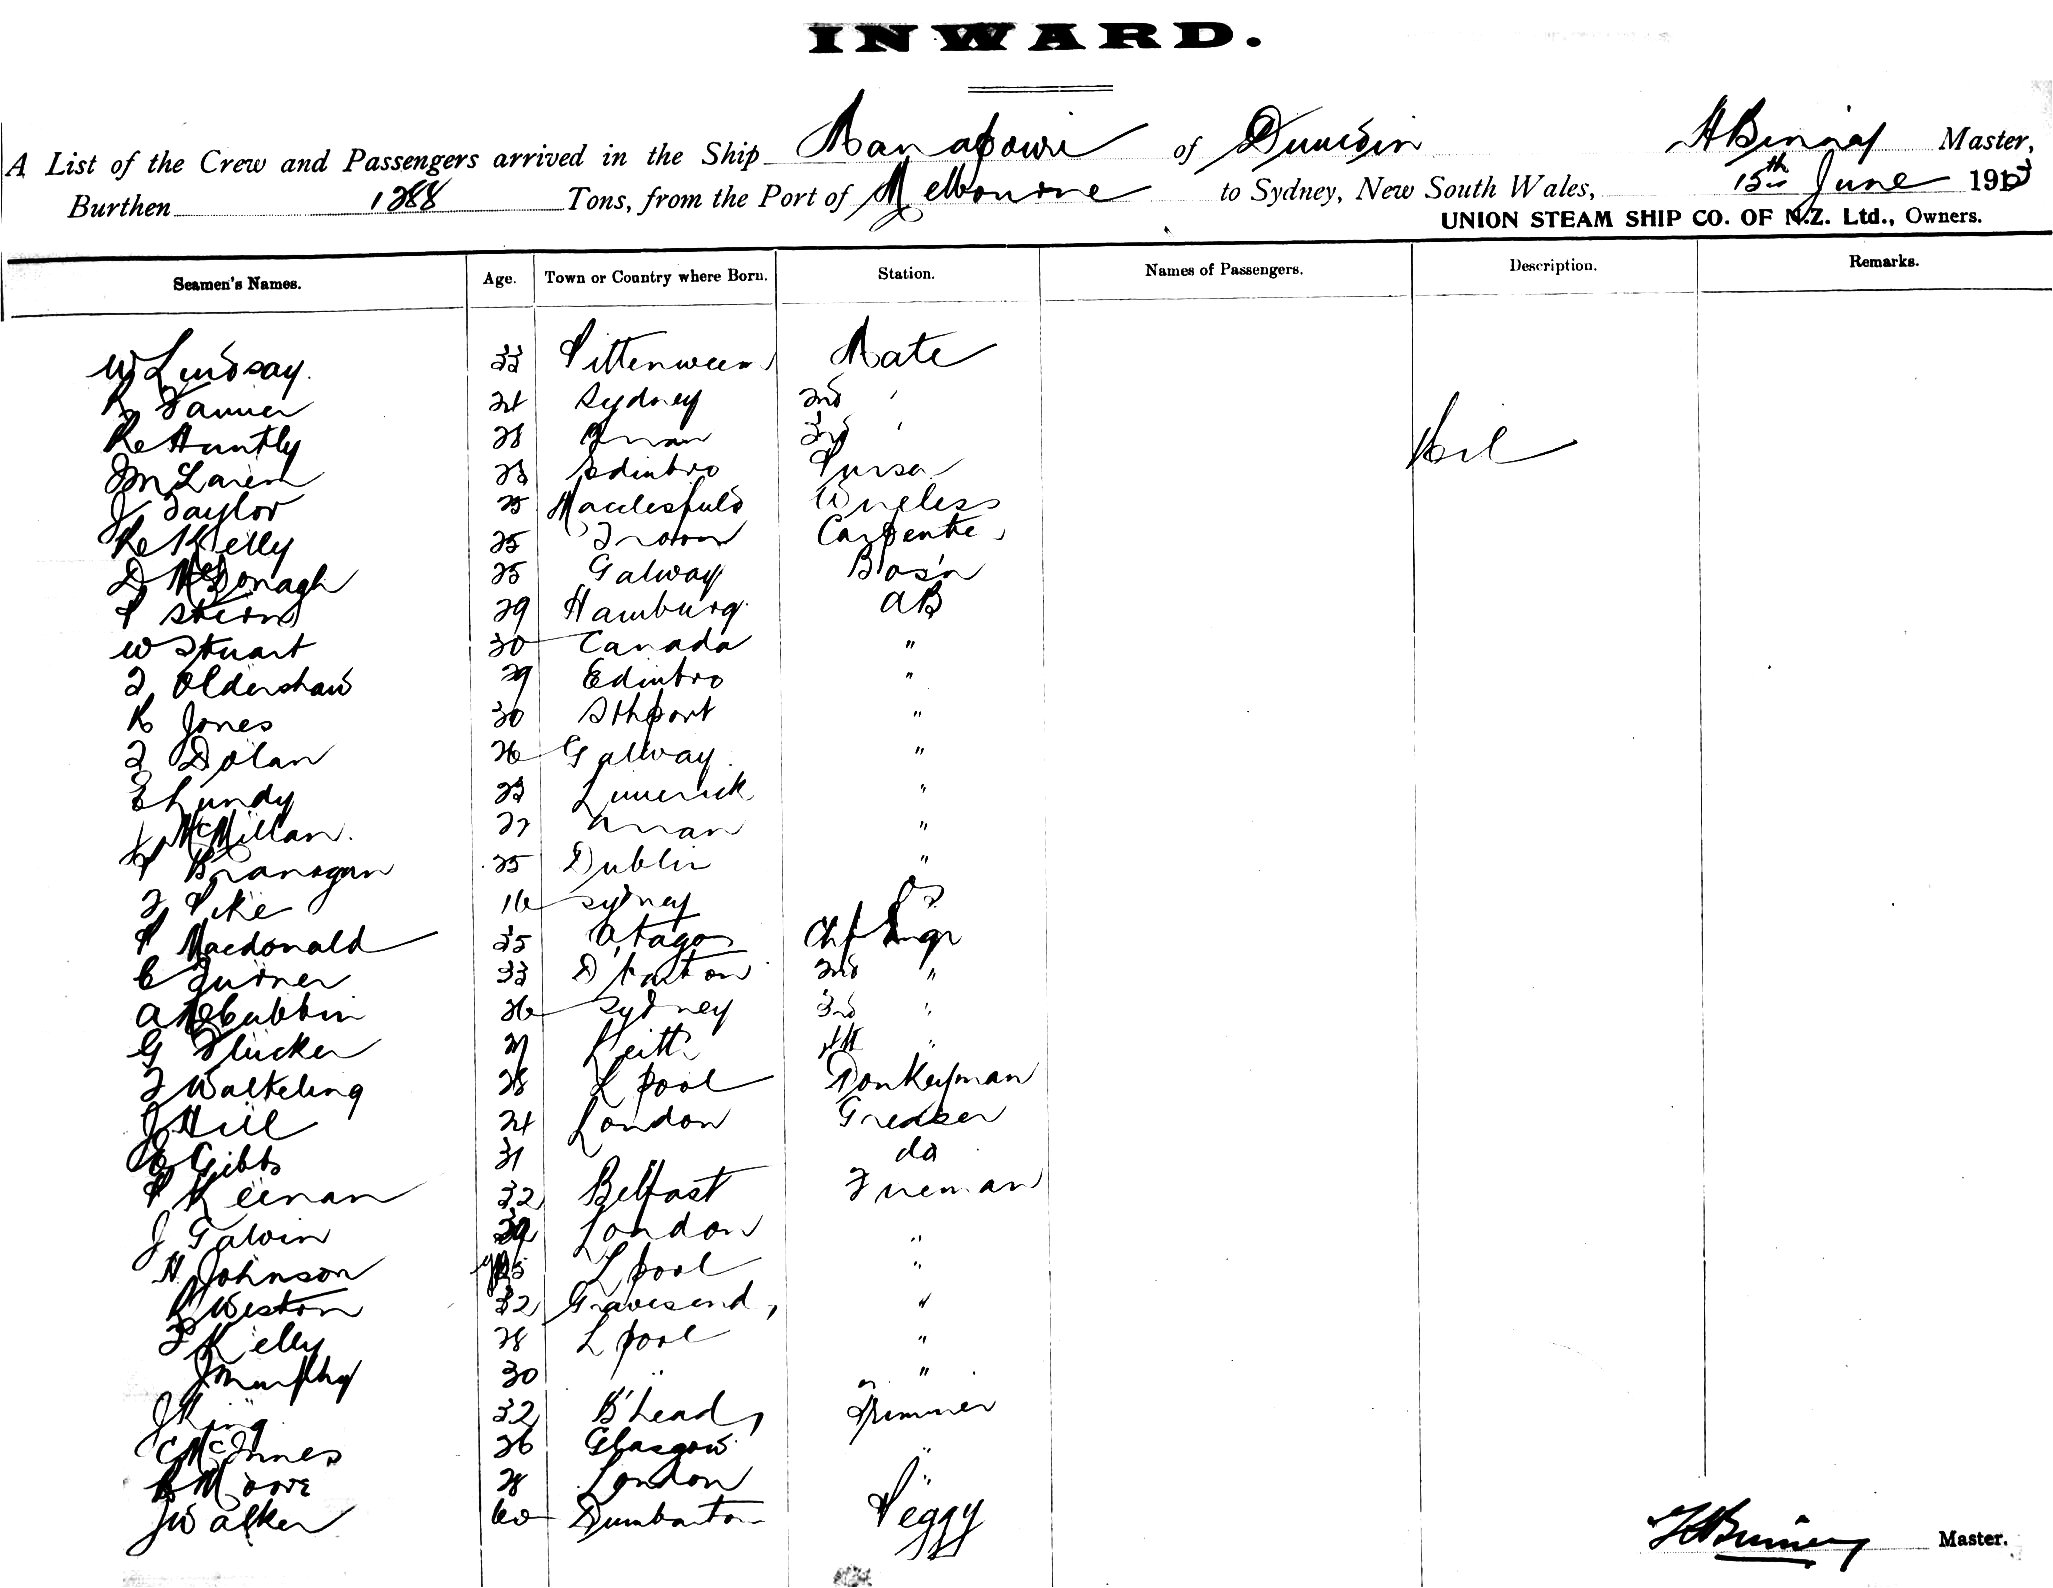 INWARD.
A List of the Crew and Passengers arrived in the Ship Manapouri of Dunedin Master,
Burthen 1288 Tons, from the Port of Melbourne to Sydney, New South Wales, 15th June 191
UNION STEAM SHIP CO. OF N.Z. Ltd., Owners.
Seamen's Names. Age. Town or Country where Born. Station. Names of Passengers. Description. Remarks.
W Lindsay. 33 Pittenweem Mate
R Tanner 24 Sydney 2nd "
R Huntly 28 3rd "
J McLaren 23 Edinbro Purser
J Taylor 25 Macclesfield Wireless
R Kelly 25 Troon Carpenter
D McDonagh 25 Galway Bos'n
P 29 Hamburg. AB
W Stuart 30 Canada "
T Oldershaw 29 Edinbro "
R Jones 30 Sthport "
T Dolan 26 Galway. "
E Lundy 23 Limerick "
McMillan. 27 "
P Branagan 25 Dublin "
T Pike 16 Sydney OS
P Macdonald 35 Otago Chf Engr
C Turner 33 2nd "
A McCubbin 26 Sydney 3rd "
G Flucker 27 Leith 4th "
T Walkeling 28 L'pool Donkeyman
J Hill 24 London Greaser
E Gibbs 31 do
P Keenan 32 Belfast Fireman
J Galvin London "
H Johnson L'pool "
R Weston 32 Gravesend, "
T Kelly 28 L'pool "
J Murphy 30 " "
J King 32 B'head, Trimmer
C McInnes 26 Glasgow "
R Moore 28 London "
J Walker 60 Dumbarton Peggy
Nil
Master.